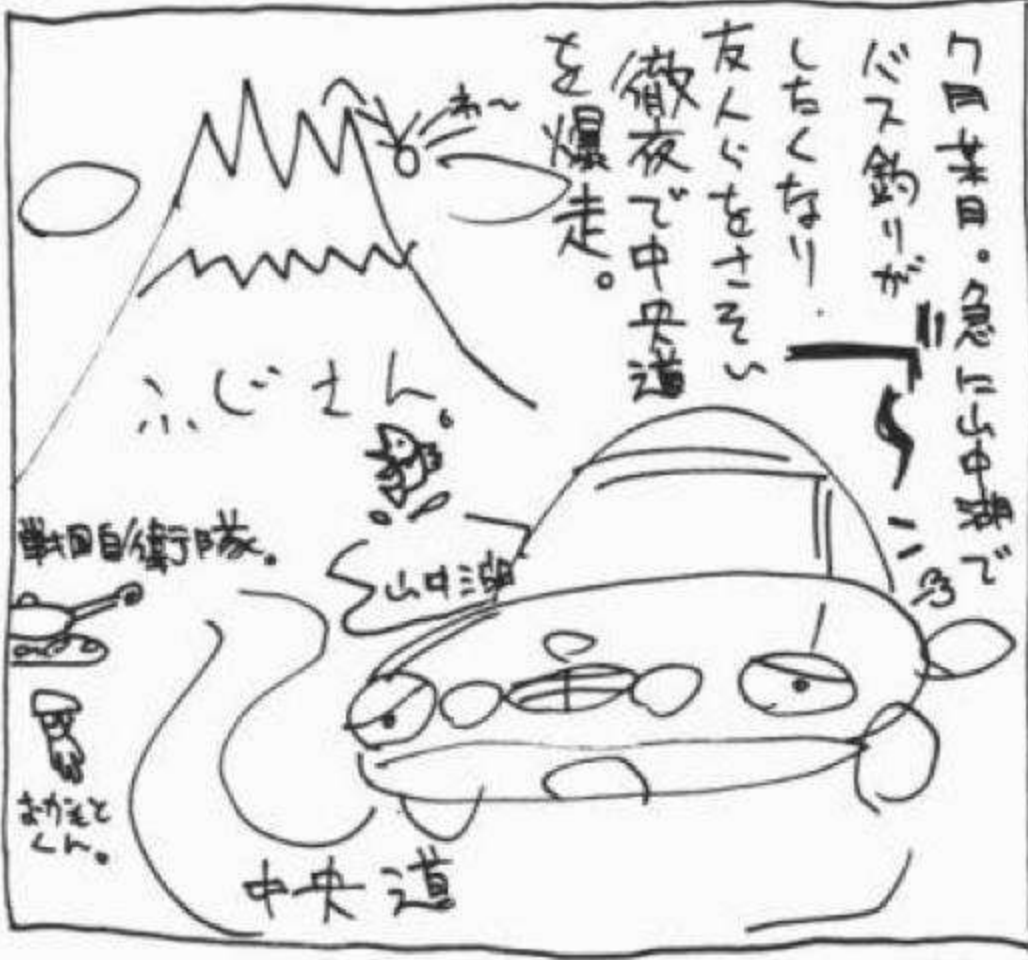 月某日。急に山中湖で
バス釣りが
したくなり、
友人らをさそい
徹夜で中央道
を爆走。
わ〜
ふじさん。
山中湖
戦国自衛隊。
おかもと
くん。
中央道